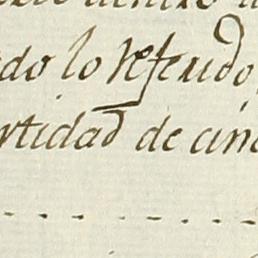 do lo referido
rtidad de cinc